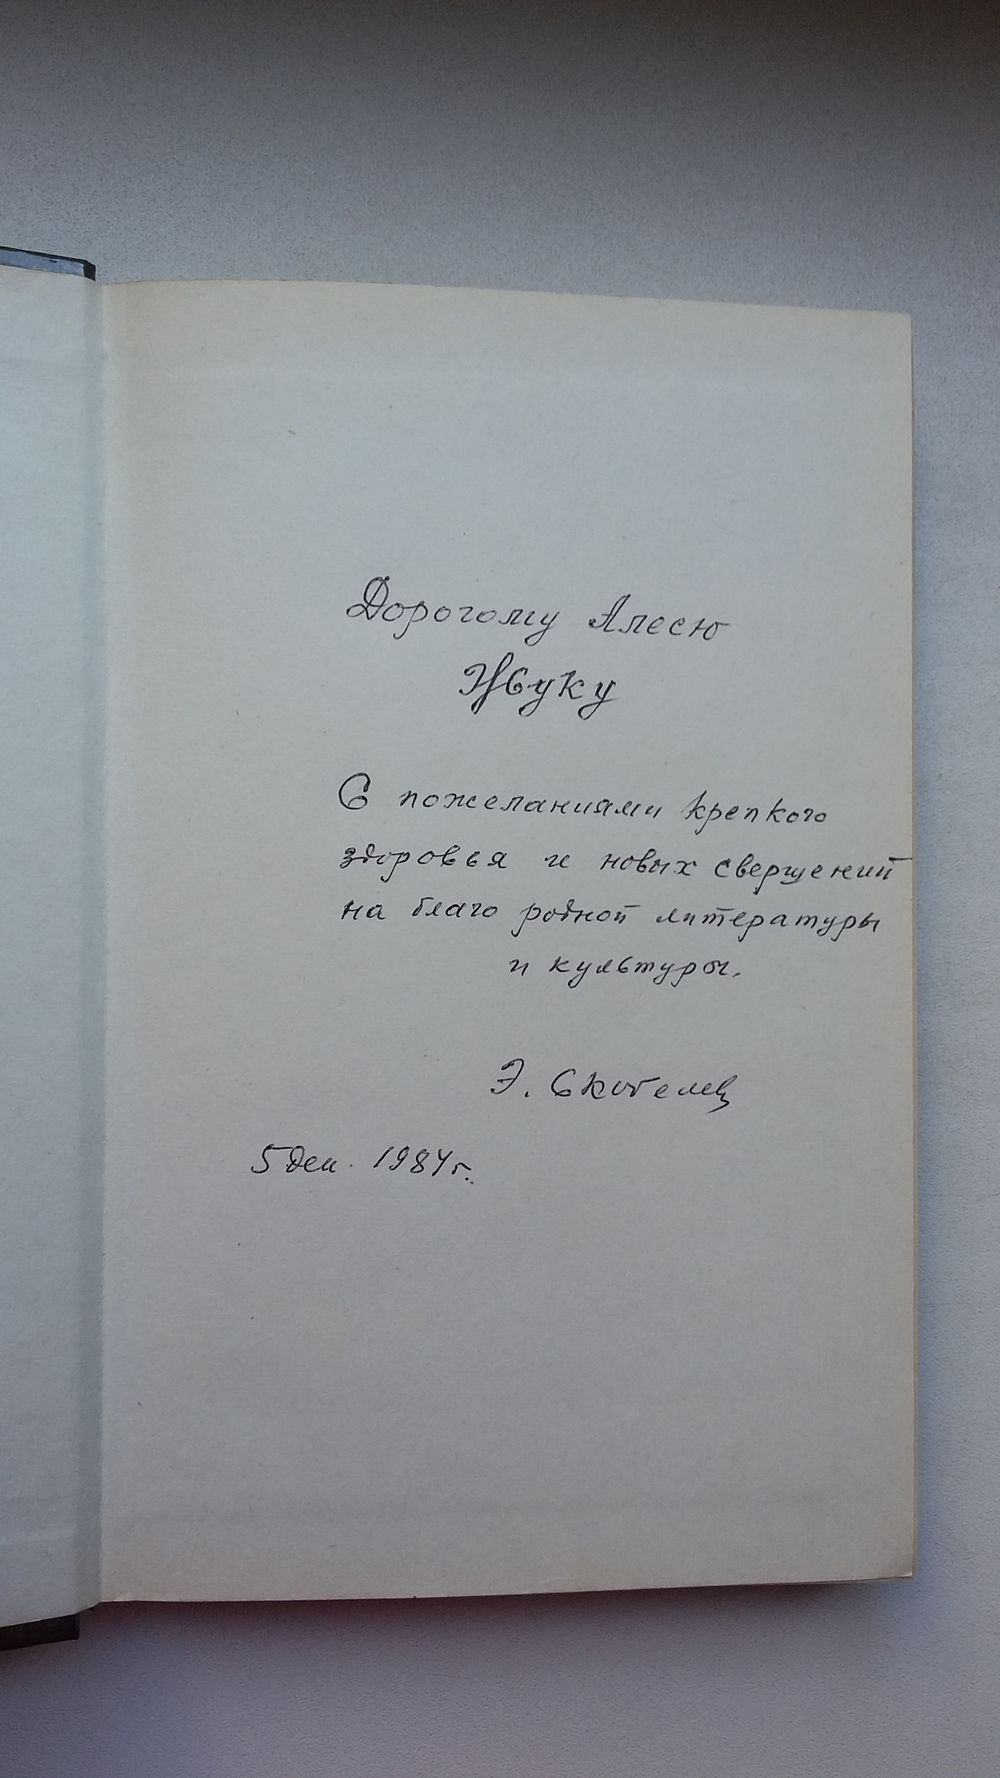 Дорогому Алесю
Жуку
С пожеланиями крепкого
здоровья и новых свершений
на благо родной литературы
и культуры.
Э. Скобелев
5 дек. 1984 г.